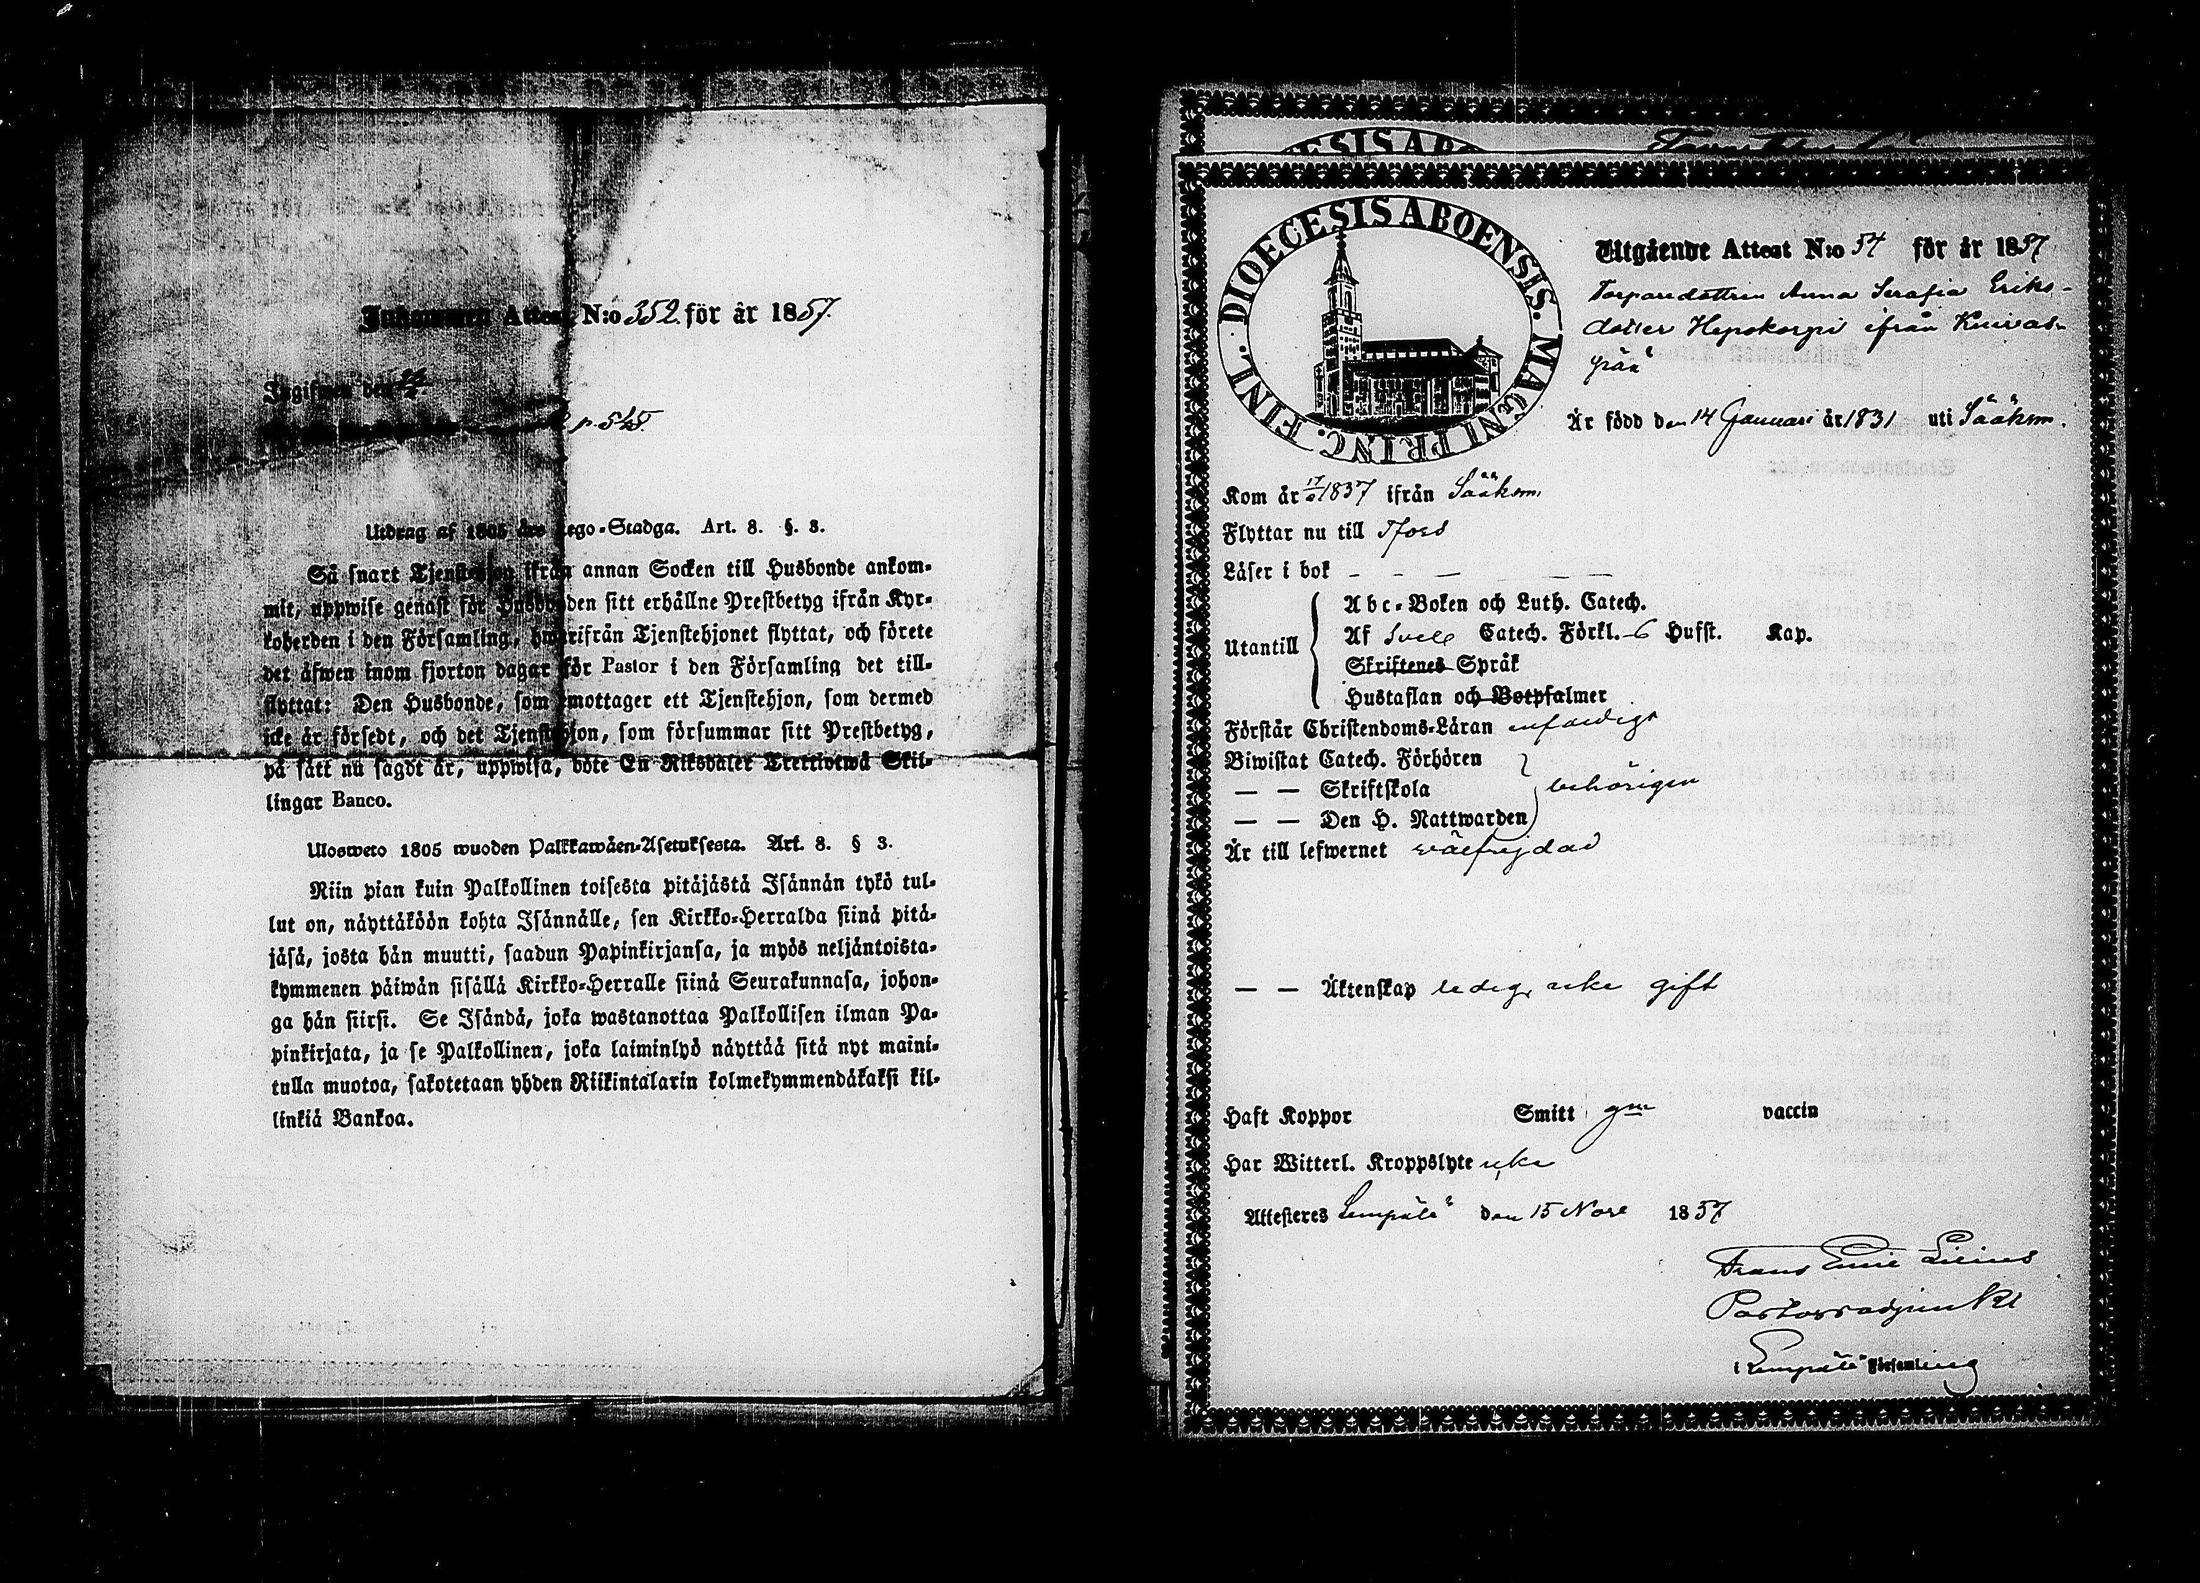 Inkommen Attest N:o 352. för år 1857.
Ingifwen den
p. 545.
Utdrag af 1805 års Lego-Stadga. Art. 8. §. 3.
Så snart Tjenstehjon ifrån annan Socken till Husbonde ankom-
mit, uppwise genast för Husbonden sitt erhållne Prestbetyg ifrån Kyr-
koherden i den Församling, hwarifrån Tjenstehjonet flyttat, och förete
det äfwen inom fjorton dagar för Pastor i den Församling det till-
flyttat: Den Husbonde, som emottager ett Tjenstehjon, som dermed
icke är försedt, och det Tjenstehjon, som försummar sitt Prestbetyg,
på sätt nu sagdt är, uppwisa, böte En Riksdaler Trettiotwå Skil-
lingar Banco.
Ulosweto 1805 wuoden Palkkawäen-Asetuksesta. Art. 8. § 3.
Niin pian kuin Palkollinen toisesta pitäjästä Isännän tykö tul-
lut on, näyttäköön kohta Isännälle, sen Kirkko-Herralda siinä pitä-
jäsä, josta hän muutti, saadun Papinkirjansa, ja myös neljäntoista-
kymmenen päiwän sisällä Kirkko-Herralle siinä Seurakunnasa, johon-
ga hän siirsi. Se Isändä, joka wastanottaa Palkollisen ilman Pa-
pinkirjata, ja se Palkollinen, joka laiminlyö näyttää sitä nyt maini-
tulla muotoa, sakotetaan yhden Riikintalarin kolmekymmendäkaksi kil-
linkiä Bankoa.
DIOECESIS ABOENSIS. MAGNI PRINC. FINL.
Utgående Attest N:o 54 för år 1857
Torparedottren Anna Serafia Eriks-
dotter Hepokorpi ifrån Kuivas-
pää
Är född den 14 Januari år 1831 uti Sääksm.
Kom år 1837 ifrån Sääksm.
Flyttar nu till Tfors
Läser i bok - - - - - -
Utantill
Abc-Boken och Luth. Catech.
Af Svebe Catech. Förkl. 6 Hufst. Kap.
Skriftenes Språk
Hustaflan och Botpsalmer
Förstår Christendoms-Läran enfaldigt
Biwistat Catech. Förhören
— — Skriftskola behörigen
— — Den H. Nattwarden
Är till lefwernet välfrejdad
— — Äktenskap ledig, icke gift
Haft Koppor Smitt gm vaccin
Har Witterl. Kroppslyte icke
Attesteres Lempälä den 15 Nove 1857
Frans Emil Lilius
Pastorsadjunkt
i Lempälä Församling